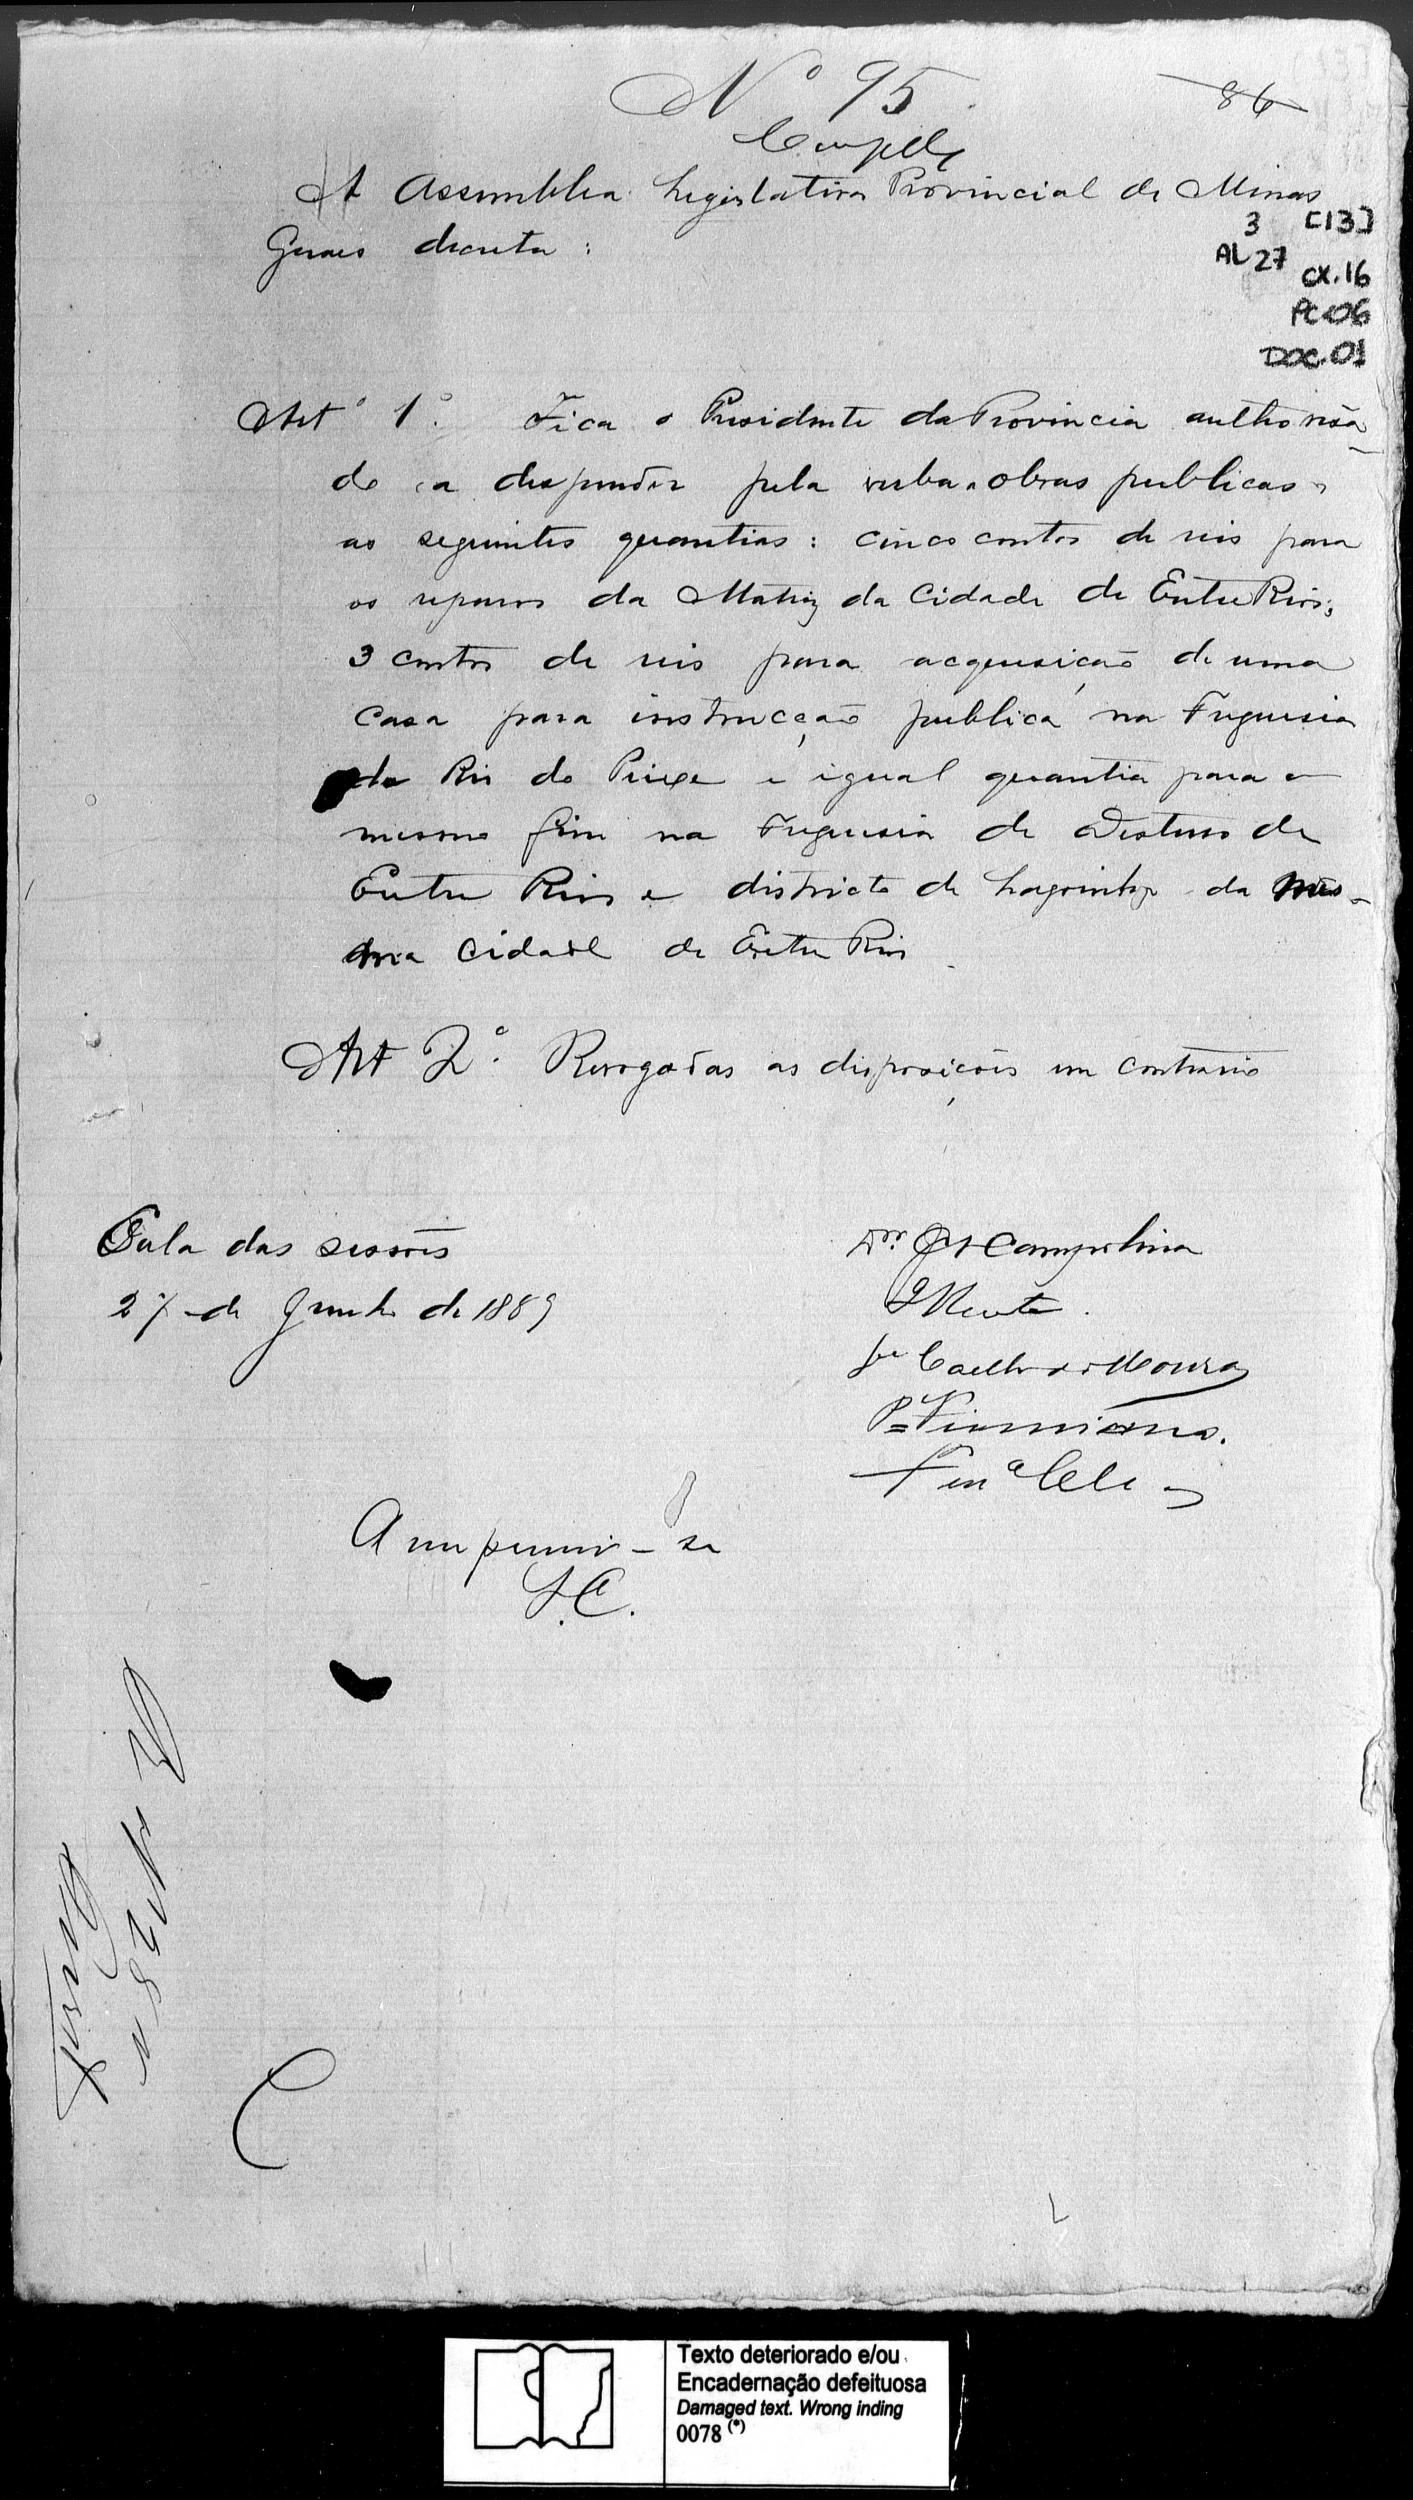 Nº 95
86
A Assemblea Legislativa Provincial de Minas
Geraes decreta:
3 [13]
AL 27
CX.16
PC-06
DOC.01
Artº 1º. Fica o Presidente da Provincia authorisa-
do a despender pela verba "obras publicas"
as seguintes quantias: cinco contos de reis para
os reparos da Matriz da Cidade de Entre Rios;
3 contos de reis para acquisição de uma
casa para instrucção publica na Freguesia
do Rio do Peixe e igual quantia para o
mesmo fim na Freguesia de Desterro de
Entre Rios e districto de Lagoinha da mes-
ma cidade de Entre Rios
Art 2º. Revogadas as disposições em contrario
Sala das sessões
27 de Junho de 1889
Dr. Campolina
Coelho de Moura
Pe Firmiano.
A imprimir-se
S.C.
Texto deteriorado e/ou
Encadernação defeituosa
Damaged text. Wrong inding
0078 (*)